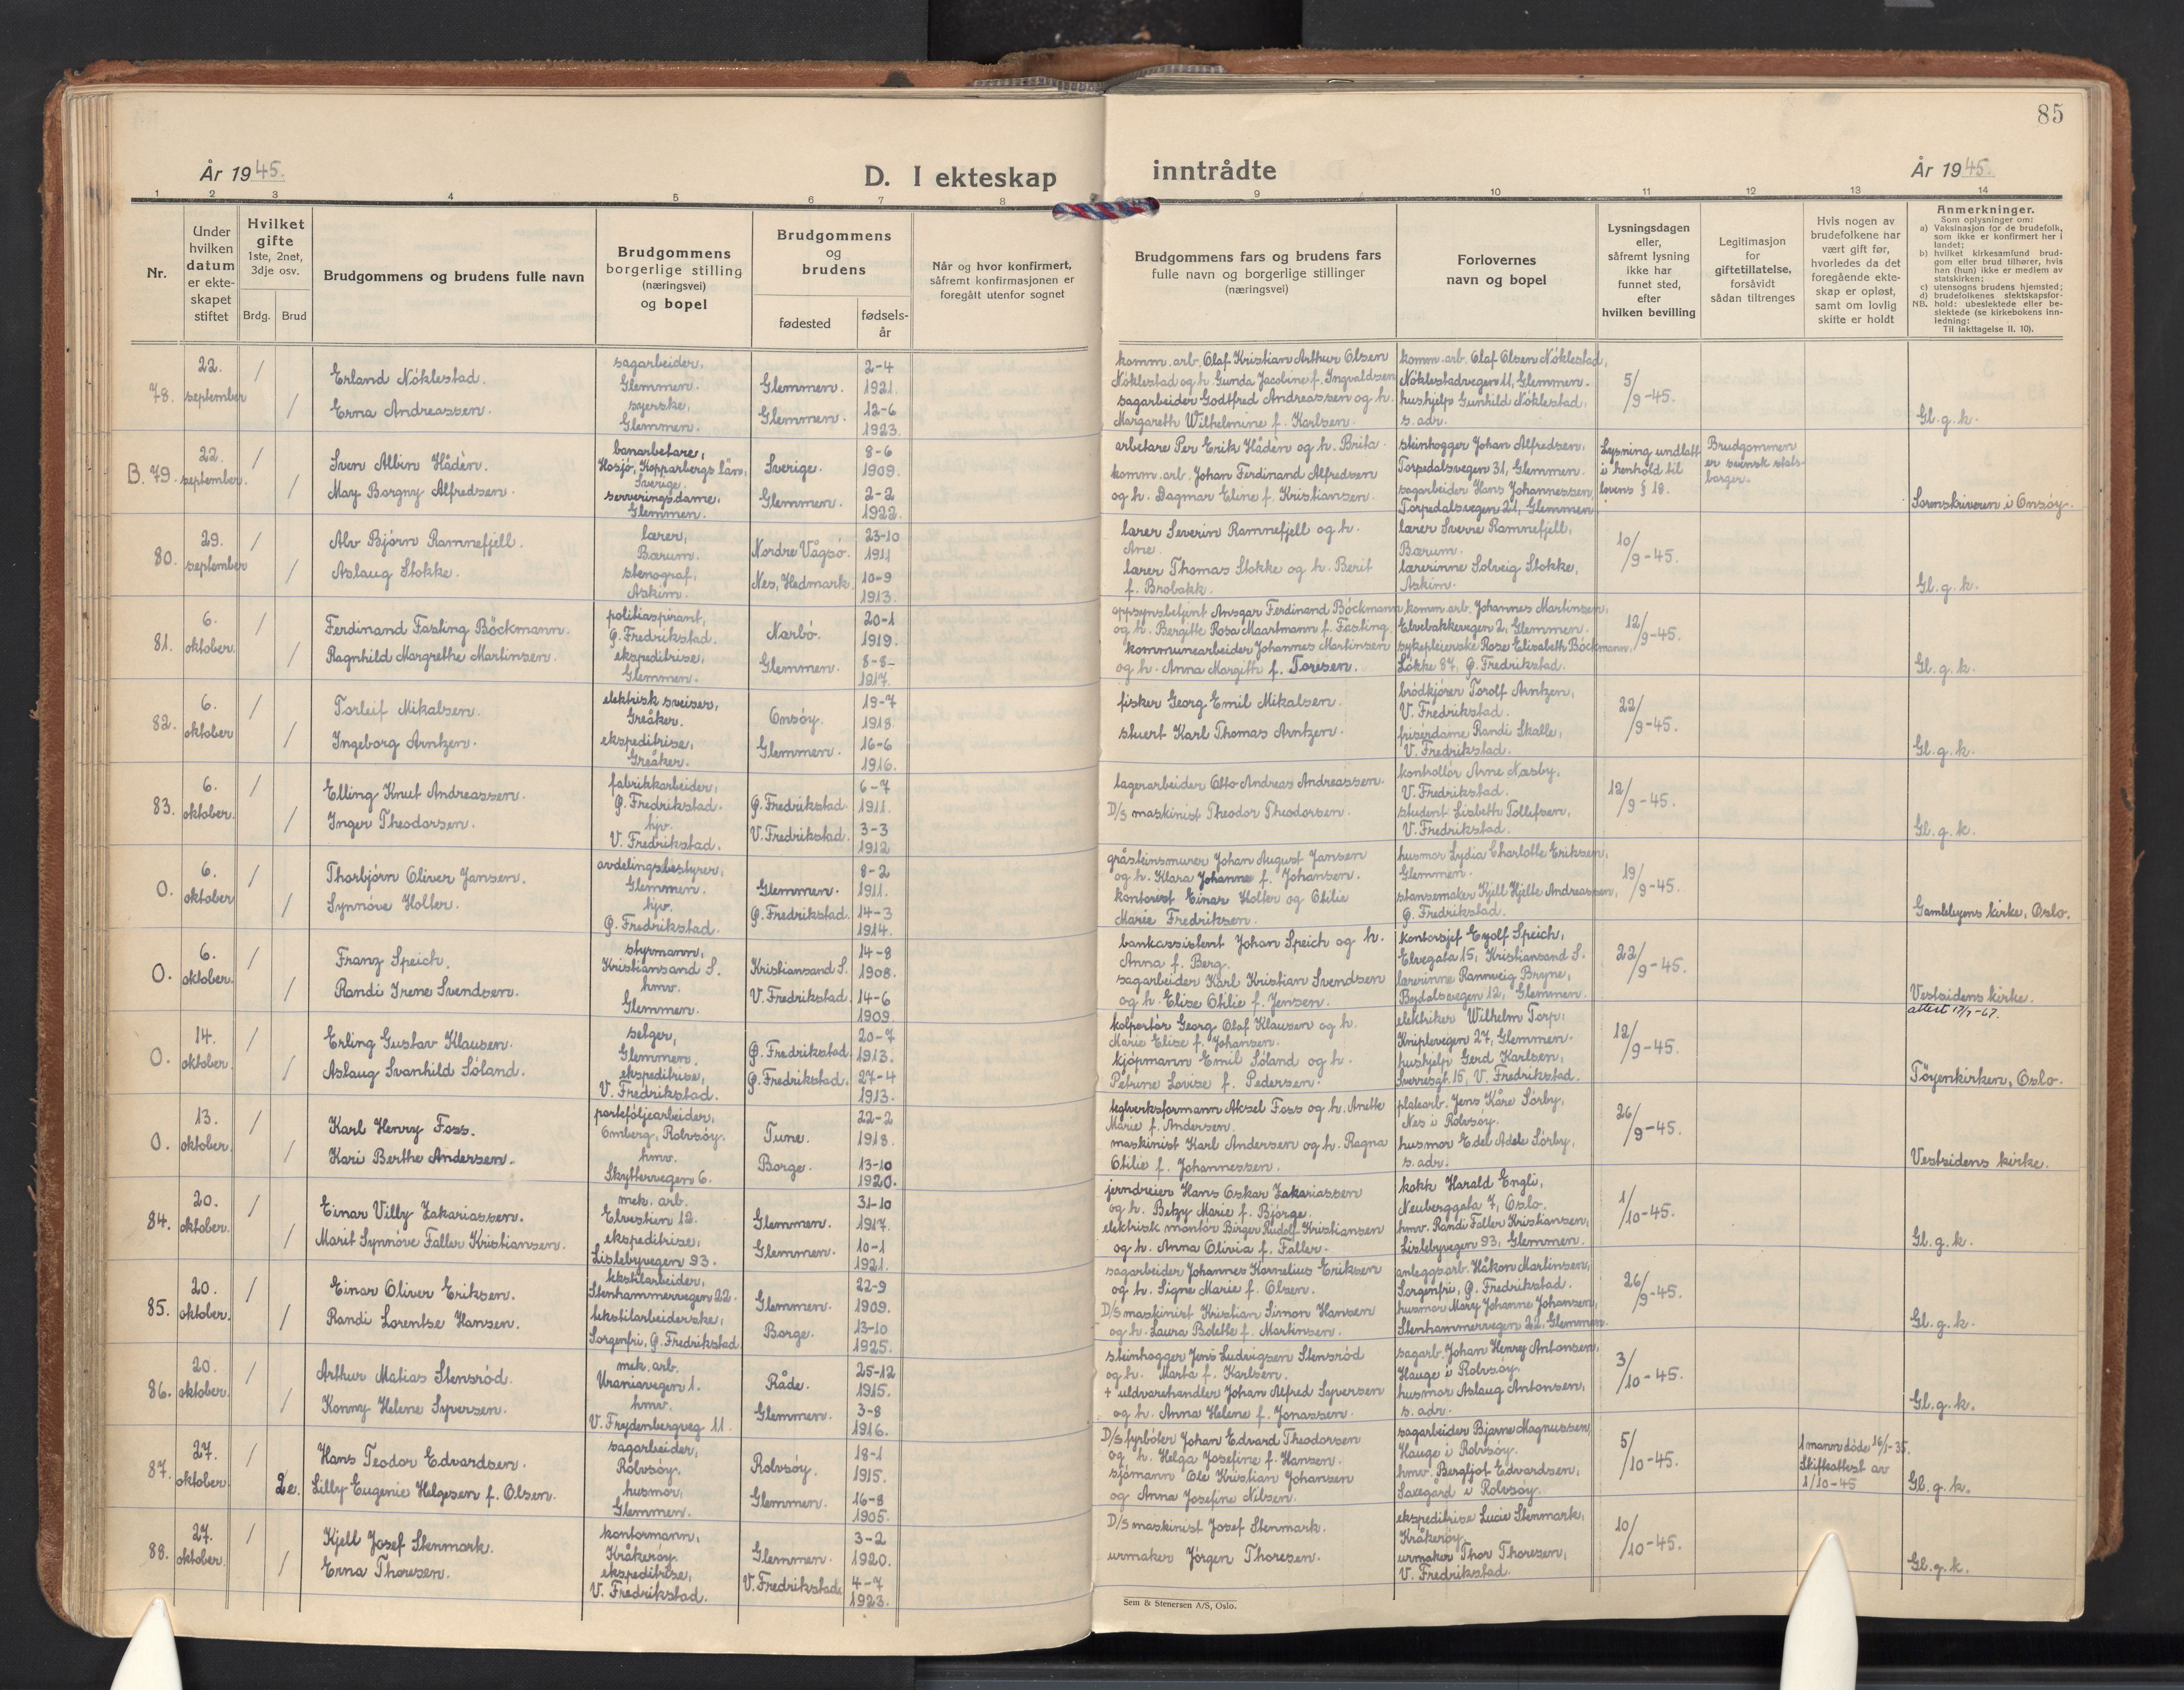 85
År 1945.
D. I ekteskap inntrådte
År 1945.
1 2 3 4 5 6 7 8 9 10 11 12 13 14
Nr.
Under hvilken datum er ekte-skapet stiftet
Hvilket gifte 1ste, 2net, 3dje osv.
Brdg. Brud
Brudgommens og brudens fulle navn
Brudgommens borgerlige stilling (næringsvei) og bopel
Brudgommens og brudens
fødested
fødsels-år
Når og hvor konfirmert, såfremt konfirmasjonen er foregått utenfor sognet
Brudgommens fars og brudens fars fulle navn og borgerlige stillinger (næringsvei)
Forlovernes navn og bopel
Lysningsdagen eller, såfremt lysning ikke har funnet sted, efter hvilken bevilling
Legitimasjon for giftetillatelse, forsåvidt sådan tiltrenges
Hvis nogen av brudefolkene har vært gift før, hvorledes da det foregående ekte-skap er opløst, samt om lovlig skifte er holdt
Anmerkninger.
Som oplysninger om:
a) Vaksinasjon for de brudefolk, som ikke er konfirmert her i landet;
b) hvilket kirkesamfund brud-gom eller brud tilhører, hvis han (hun) ikke er medlem av statskirken;
c) utensogns brudens hjemsted;
d) brudefolkenes slektskapsfor-
NB. hold: ubeslektede eller be-slektede (se kirkebokens inn-ledning:
Til iakttagelse II. 10).
78. 22. september 1 1
Erland Nöklestad.
Erna Andreassen.
sagarbeider, Glemmen.
syerske, Glemmen.
Glemmen. 2-4 1921.
Glemmen. 12-6 1923.
komm. arb. Olaf Kristian Arthur Olsen
Nöklestad og h. Gunda Jacobine f. Ingvaldsen
sagarbeider Godtfred Andreassen og h.
Margareth Wilhelmine f. Karlsen.
komm. arb. Olaf Olsen Nöklestad,
Nöklestadvegen 11, Glemmen.
hushjelp Gunhild Nöklestad,
s. adr.
5/9-45.
Gl. g. k.
B. 79. 22. september. 1 1
Sven Albin Hådèn.
May Borgny Alfredsen.
banarbetare, Hosjö, Kopparbergs län, Sverige.
serveringsdame, Glemmen.
Sverige. 8-6 1909.
Glemmen. 2-2 1922.
arbetare Per Erik Hådèn og h. Brita.
komm. arb. Johan Ferdinand Alfredsen
og h. Dagmar Eline f. Kristiansen.
steinhogger Johan Alfredsen,
Torpedalsvegen 31, Glemmen.
sagarbeider Hans Johannessen,
Torpedalsvegen 21, Glemmen
Lysning undlatt i henhold til lovens § 18.
Brudgommen er svensk stats-borger.
Sorenskriveren i Onsöy.
80. 29. september 1 1
Alv Björn Ramnefjell.
Aslaug Stokke.
lærer, Bærum.
stenograf, Askim.
Nordre Vågsö. 23-10 1911
Nes, Hedmark. 10-9 1913.
lærer Severin Ramnefjell og h.
Ane.
lærer Thomas Stokke og h. Berit
f. Brobakk.
lærer Sverre Ramnefjell,
Bærum.
lærerinne Solveig Stokke,
Askim.
10/9-45.
Gl. g. k.
81. 6. oktober. 1 1
Ferdinand Fasting Böckmann.
Ragnhild Margrethe Martinsen.
politiaspirant, G. Fredrikstad.
ekspeditrise, Glemmen.
Nærbö. 20-1 1919.
Glemmen. 8-8- 1917.
oppsynsbetjent Ansgar Ferdinand Böckmann
og h. Bergitte Rosa Maartmann f. Fasting.
kommunearbeider Johannes Martinsen
og h. Anna Margith f. Toresen.
komm. arb. Johannes Martinsen,
Elvebakkevegen 2, Glemmen.
sykepleierske Rose Elisabeth Böckmann,
Lökke 87, G. Fredrikstad.
12/9-45.
Gl. g. k.
82. 6. oktober 1 1
Torleif Mikalsen.
Ingeborg Arntzen.
elektrisk sveiser, Greåker.
ekspeditrise, Greåker.
Onsöy. 19-7 1918.
Glemmen. 16-6 1916.
fisker Georg Emil Mikalsen.
stuert Karl Thomas Arntzen.
brödkjörer Torolf Arntzen,
V. Fredrikstad.
frisérdame Randi Skalle,
V. Fredrikstad.
22/9-45.
Gl. g. k.
83. 6. oktober. 1 1
Elling Knut Andreassen.
Inger Theodorsen.
fabrikkarbeider, G. Fredrikstad.
hjv. V. Fredrikstad.
G. Fredrikstad. 6-7 1911.
V. Fredrikstad. 3-3 1912
lagerarbeider Otto Andreas Andreassen.
D/S maskinist Theodor Theodorsen.
kontrollör Arne Næsby.
V. Fredrikstad.
student Lisbeth Tollefsen,
V. Fredrikstad.
12/9-45.
Gl. g. k.
O. 6. oktober 1 1
Thorbjörn Oliver Jansen.
Synnöve Holter.
avdelingsbestyrer, Glemmen.
hjv. G. Fredrikstad.
Glemmen. 8-2 1911.
G. Fredrikstad. 14-3 1914.
gråsteinsmurer Johan August Jansen
og h. Klara Johanne f. Johansen.
kontorist Einar Holter og Otilie
Marie Fredriksen.
husmor Lydia Charlotte Eriksen,
Glemmen.
stansemaker Kjell Hjelte Andreassen,
G. Fredrikstad.
19/9-45.
Gamlebyens kirke, Oslo.
O. 6. oktober. 1 1
Franz Speich.
Randi Irene Svendsen.
styrmann, Kristiansand S.
hmv. Glemmen.
Kristiansand S. 14-8 1908.
V. Fredrikstad. 14-6 1909.
bankassistent Johan Speich og h.
Anna f. Berg.
sagarbeider Karl Kristian Svendsen
og h. Elise Otilie f. Jensen.
kontorsjef Eyolf Speich,
Elvegata 15, Kristiansand S.
lærerinne Rannveig Bryne,
Bydalsvegen 12, Glemmen.
22/9-45.
Vestsidens kirke.
attest 17/7-67.
O. 14. oktober. 1 1
Erling Gustav Klausen.
Aslaug Svanhild Söland.
selger, Glemmen.
ekspeditrise, V. Fredrikstad.
G. Fredrikstad. 20-7 1913.
G. Fredrikstad. 27-4 1913.
kolportör Georg Olaf Klausen og h.
Marie Elise f. Johansen.
kjöpmann Emil Söland og h.
Petrine Lovise f. Pedersen.
elektriker Wilhelm Torp,
Kniplevegen 27, Glemmen.
hushjelp Gerd Karlsen,
Sverresgt. 15, V. Fredrikstad.
12/9-45.
Töyenkirken, Oslo.
O. 13. oktober. 1 1
Karl Henry Foss.
Kari Berthe Andersen.
porteföljearbeider, Omberg, Rolvsöy.
hmv. Skyttervegen 6.
Tune. 22-2 1918.
Borge. 13-10 1920.
teglverksformann Aksel Foss og h. Anette
Marie f. Andersen.
maskinist Karl Andersen og h. Ragna
Otilie f. Johannessen.
platearb. Jens Kåre Sörby,
Nes i Rolvsöy.
husmor Edel Adele Sörby,
s. adr.
26/9-45.
Vestsidens kirke.
84. 20. oktober. 1 1
Einar Villy Zakariassen.
Marit Synnöve Faller Kristiansen.
mek. arb. Elvestien 12.
ekspeditrise, Lislebyvegen 93.
Glemmen. 31-10 1917.
Glemmen. 10-1 1921.
jerndreier Hans Oskar Zakariassen
og h. Betzy Marie f. Björge.
elektrisk montör Birger Rudolf Kristiansen
og h. Anna Olivia f. Faller.
kokk Harald Engli,
Neuberggata 7, Oslo.
hmv. Randi Faller Kristiansen,
Lislebyvegen 93, Glemmen.
1/10-45.
Gl. g. k.
85. 20. oktober. 1 1
Einar Oliver Eriksen.
Randi Lorentse Hansen.
tekstilarbeider, Stenhammervegen 22.
tekstilarbeiderske, Sorgenfri, G. Fredrikstad
Glemmen. 22-9 1909.
Borge. 13-10 1925.
sagarbeider Johannes Kornelius Eriksen
og h. Signe Marie f. Olsen.
D/S maskinist Kristian Simon Hansen
og h. Laura Bolette f. Martinsen.
anleggsarb. Håkon Martinsen,
Sorgenfri, G. Fredrikstad.
husmor Mary Johanne Johansen,
Stenhammervegen 22, Glemmen.
26/9-45.
Gl. g. k.
86. 20. oktober. 1 1
Arthur Matias Stensröd.
Konny Helene Syversen.
mek. arb. Uraniavegen 1.
hmv. V. Frydenbergveg 11.
Råde. 25-12 1915.
Glemmen. 3-8 1916.
steinhogger Jens Ludvigsen Stensröd
og h. Marta f. Karlsen.
+ uldvarehandler Johan Alfred Syversen
og h. Anna Helene f. Jonassen.
sagarb. Johan Henry Antonsen,
Hauge i Rolvsöy.
husmor Aslaug Antonsen,
s. adr.
3/10-45.
Gl. g. k.
87. 27. oktober. 1 2e.
Hans Teodor Edvardsen.
Lilly Eugenie Helgesen f. Olsen.
sagarbeider, Rolvsöy.
husmor, Glemmen.
Rolvsöy. 18-1 1915.
Glemmen. 16-8 1905.
D/S fyrböter Johan Edvard Theodorsen
og h. Helga Josefine f. Hansen.
sjömann Ole Kristian Johansen
og Anna Josefine Nilsen.
sagarbeider Bjarne Magnussen,
Hauge i Rolvsöy.
hmv. Bergljot Edvardsen,
Saxegård i Rolvsöy.
5/10-45.
1 mann döde 16/1-35. Skifteattest av 1/10-45
Gl. g. k.
88. 27. oktober. 1 1
Kjell Josef Stenmark.
Erna Thoresen.
kontormann, Kråkeröy.
ekspeditrise, V. Fredrikstad.
Glemmen. 3-2 1920.
V. Fredrikstad. 4-7 1923.
D/S maskinist Josef Stenmark.
urmaker Jörgen Thoresen.
ekspeditrise Lucie Stenmark,
Kråkeröy.
urmaker Thor Thoresen,
V. Fredrikstad.
10/10-45.
Gl. g. k.
Sem & Stenersen A/S, Oslo.